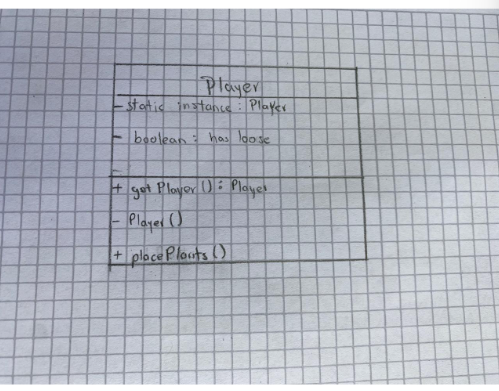 Player
- static instance : Player
- boolean : has loose
-
+ get Player () : Player
- Player ()
+ place Plants ()